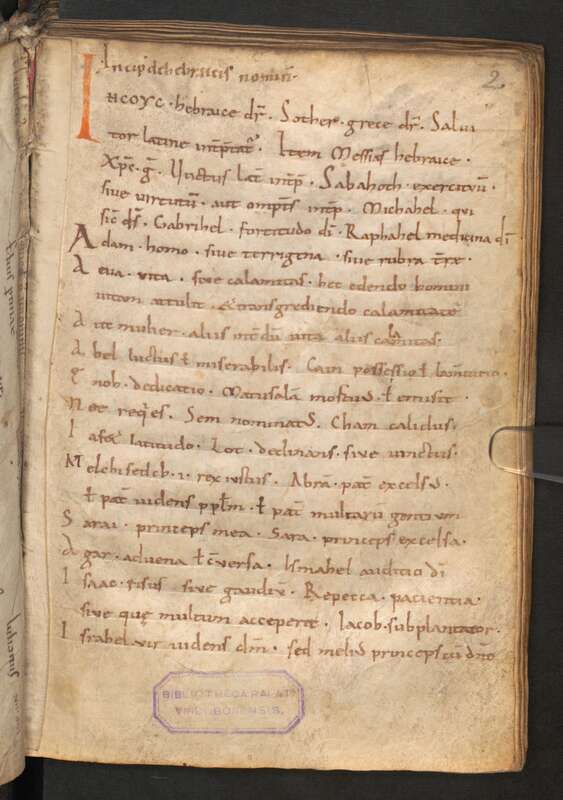 2
Incip̄ de hebraicis nominib;
Iηcoyc · hebraice dr̄ · Sother · grece dr̄ · Salua
tor latine int̄pr̄tat᷒ · Item Messias hebraice ·
Xp̄c · gr̄ · Unctus Lat̄ int̄p̄ · Sabahoth · exercituū ·
siue uirtutū · aut omp̄ts int̄p̄ · Michahel · qui
sic̄ ds̄ · Gabrihel · fortitudo dī · Raphahel medicina dī
Adam · homo · siue terrigena · siue rubra tr̄ae ·
Aeua · uita · siue calamitas · hec edendo homini
uitam attulit · & transgrediendo calamitatē
A it mulier · alius uita alius calamitas ·
A bel luctus ł miserabilis · Cain possessio ł lam̄tatio ·
E noh · dedicatio · Matusalā mortuus · ł emisit
N oe requies · Sem nominatus · Cham calidus ·
I afeth latitudo · Lot · declinans · siue uinctus ·
M elchisedeh · i · rex iustus · Abrā · pat̄ excelsus ·
ł pat̄ uidens pp̄lm̄ · ł pat̄ multarū gentium
S arai · princeps mea · Sara · princeps excelsa ·
A gar · aduena ł c̄uersa · Ismahel auditio dī
I saac · risus siue gaudiū · Rebecca · pacientia ·
siue quę multum acceperit · Iacob · subplantator ·
I srahel · uir uidens dm̄ · sed melius princeps cū dn̄o
BIBLIOTHECA PALAT.
VINDOBONENSIS.